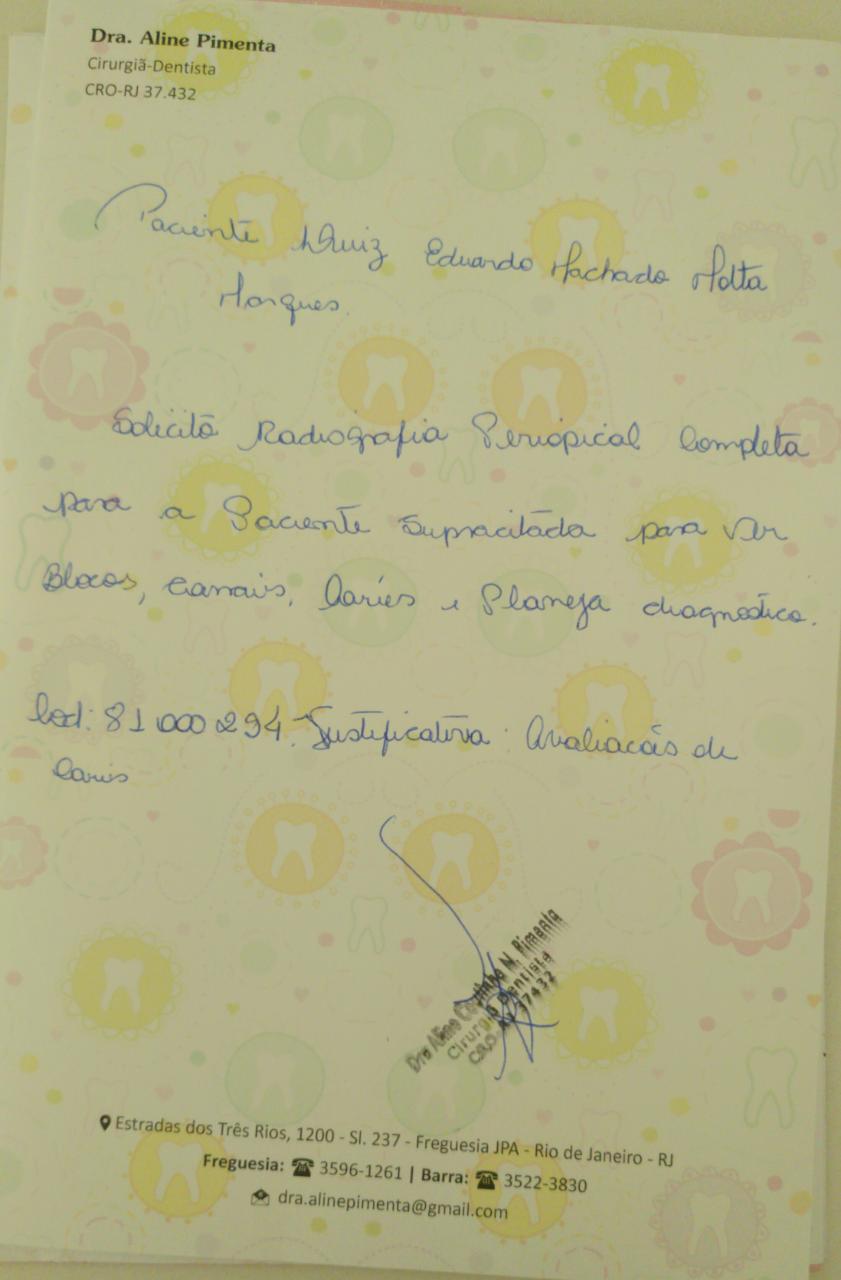 Dra. Aline Pimenta
Cirurgiã-Dentista
CRO-RJ 37.432
Paciente Luiz Eduardo Machado Motta
Marques.
Solicito Radiografia Periapical Completa
para a Paciente Supracitada para ver
Blocos, Canais, Caries e Planeja diagnostico.
Cod: 81000294. Justificativa: Avaliacão de
Caries
Dra Aline Coutinho N. Pimenta
Cirurgiã Dentista
CRO-RJ 37432
Estradas dos Três Rios, 1200 - Sl. 237 - Freguesia JPA - Rio de Janeiro - RJ
Freguesia: 3596-1261 | Barra: 3522-3830
dra.alinepimenta@gmail.com